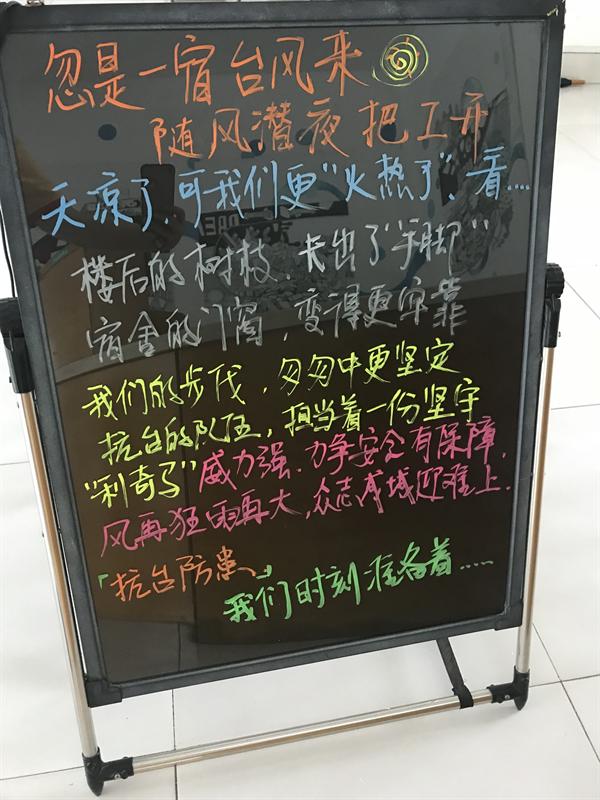 忽是一宿台风来
随风潜夜把工开
天凉了,可我们更"火热了",看....
楼后的树枝、长出了"手脚"
宿舍的门窗,变得更牢靠
我们的步伐,匆匆中更坚定
抗台的队伍,担当着一份坚守
"利奇马"威力强、力争安全有保障,
风再狂雨再大,众志成城迎难上.
「抗台防患」
我们时刻准备着.....